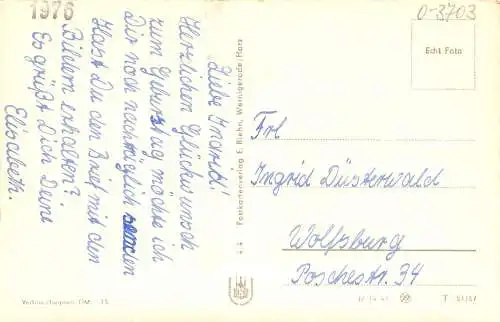 1976
0-3703
Echt Foto
Liebe Ingrid!
Herzlichen Glückwunsch
zum Geburtstag möchte ich
Dir noch nachträglich senden
Hast Du den Brief mit den
Bildern erhalten?
Es grüßt Dich Deine
Elisabeth.
Postkartenverlag E. Riehn, Wernigerode/Harz
Frl
Ingrid Düsterwald
Wolfsburg
Poschestr. 34
DM
T